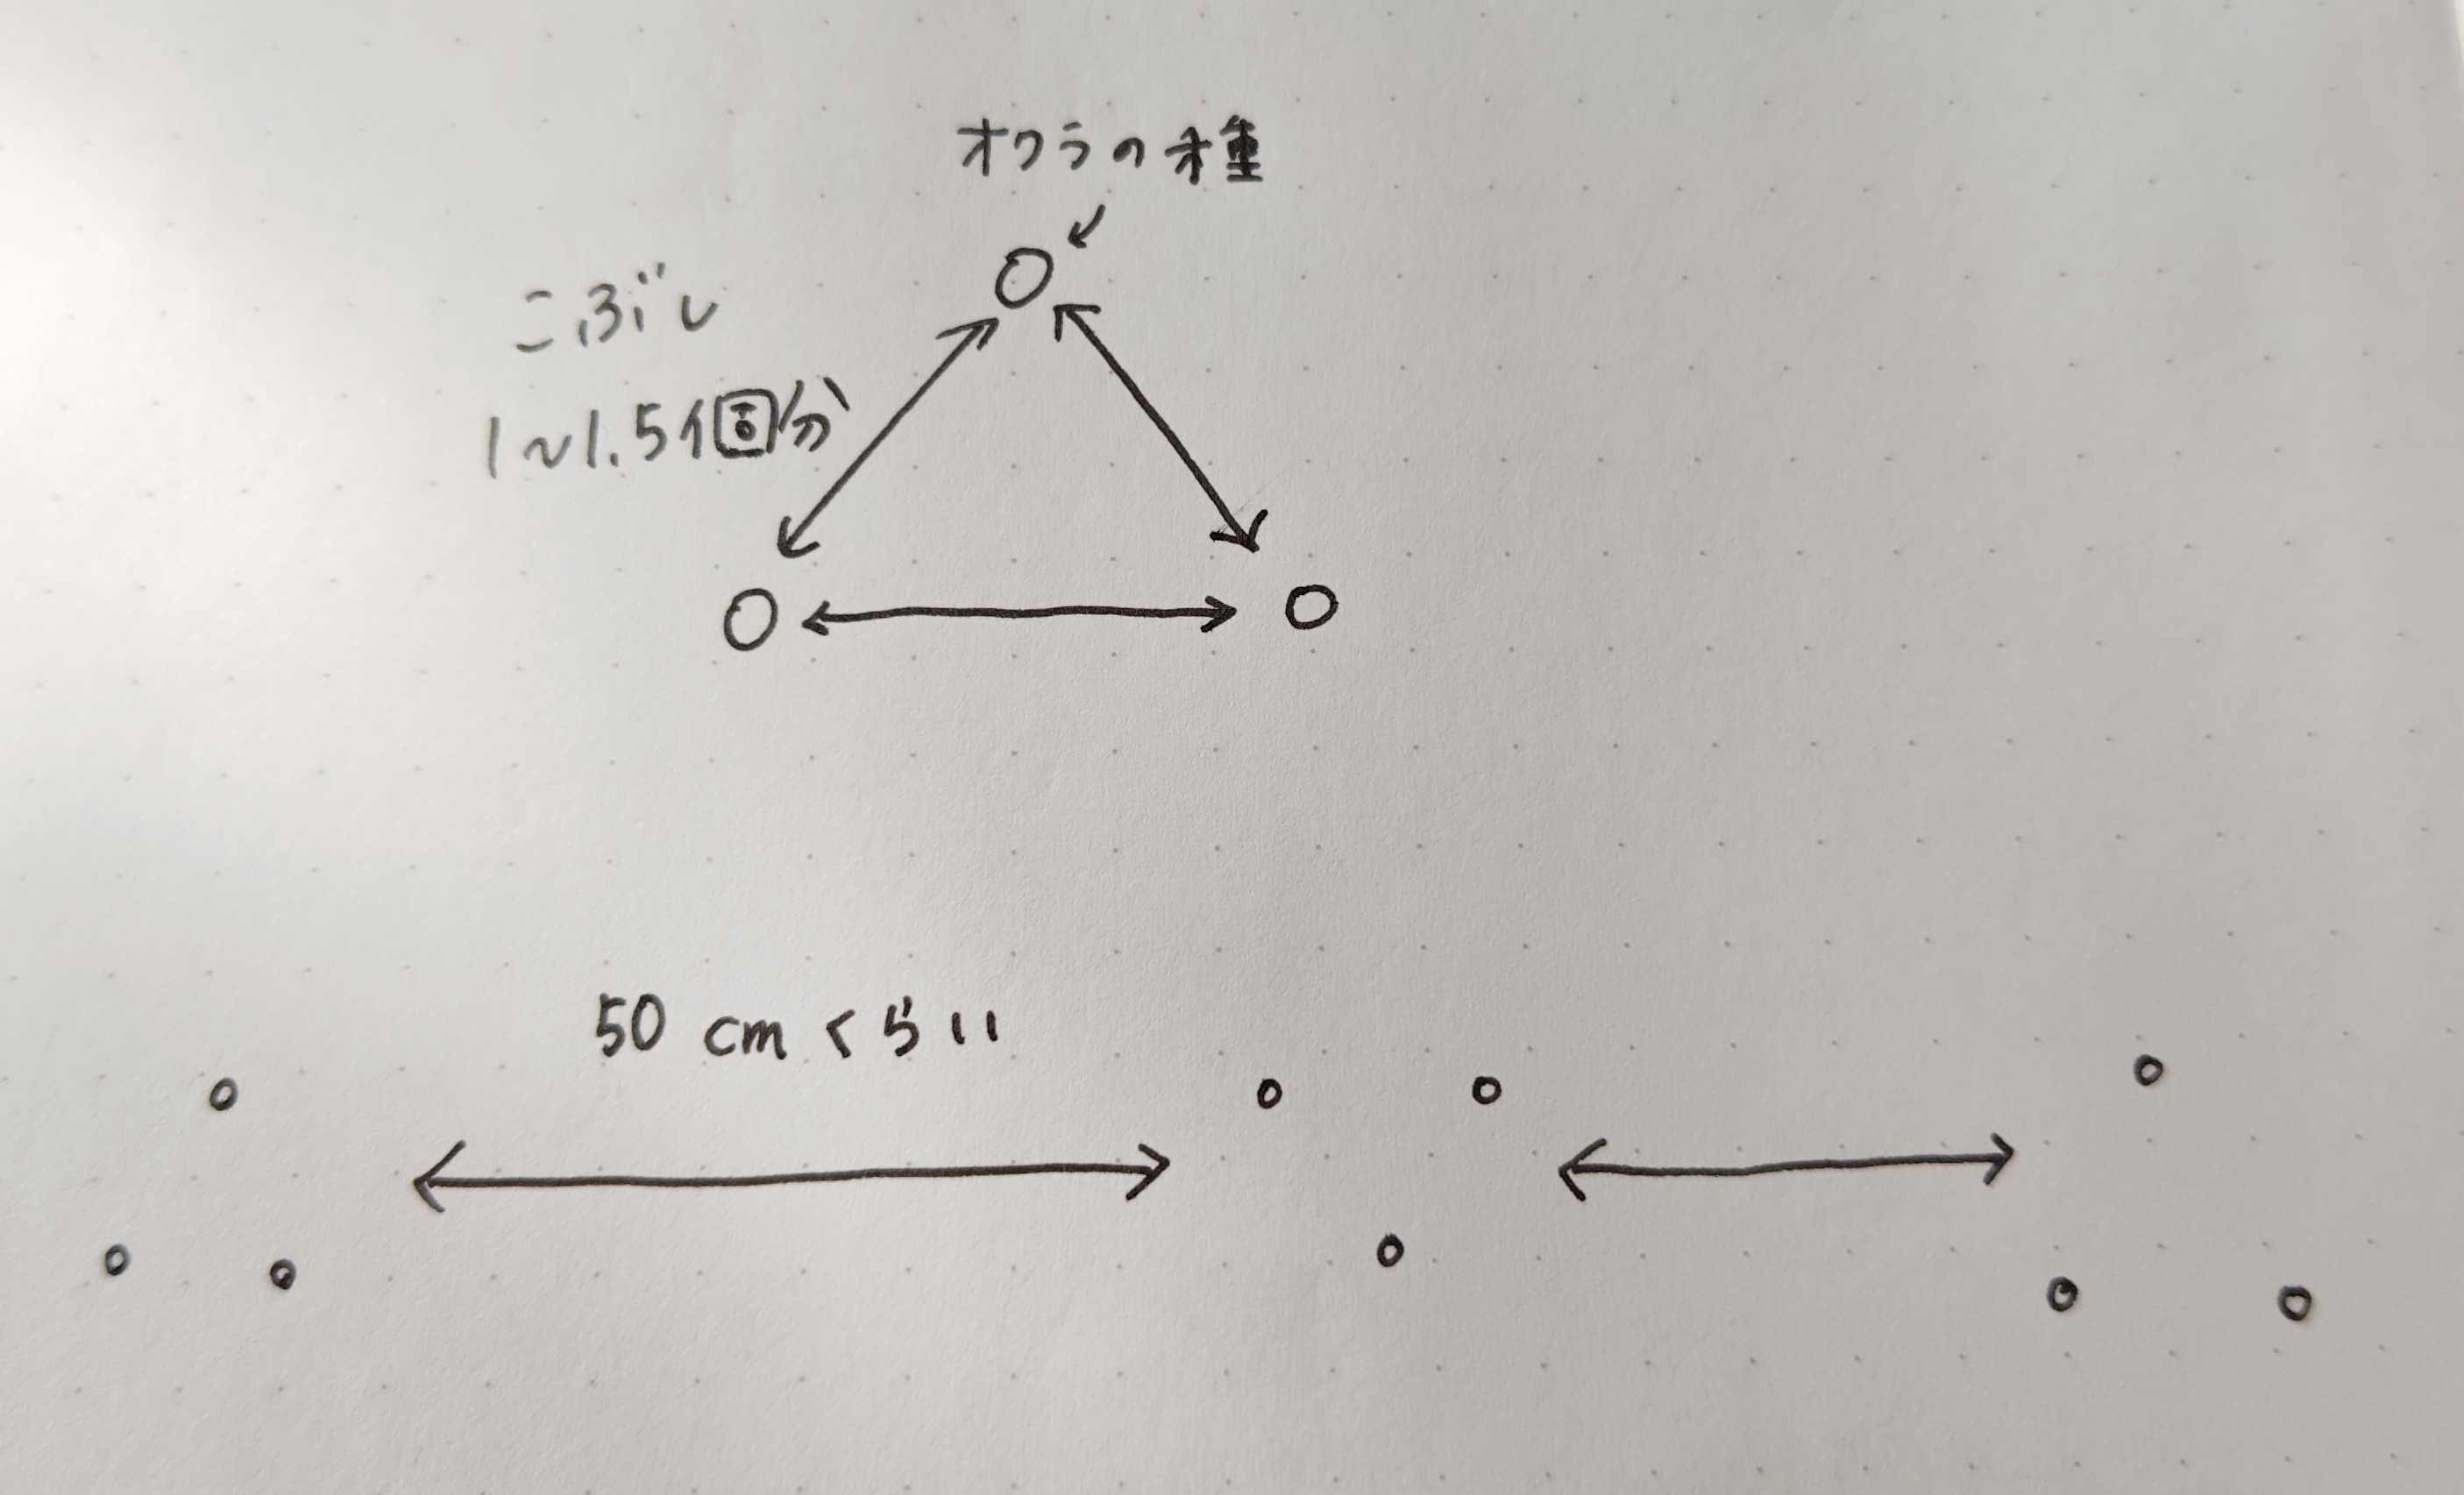 オクラの種
こぶし
1~1.5個分
50 cmくらい